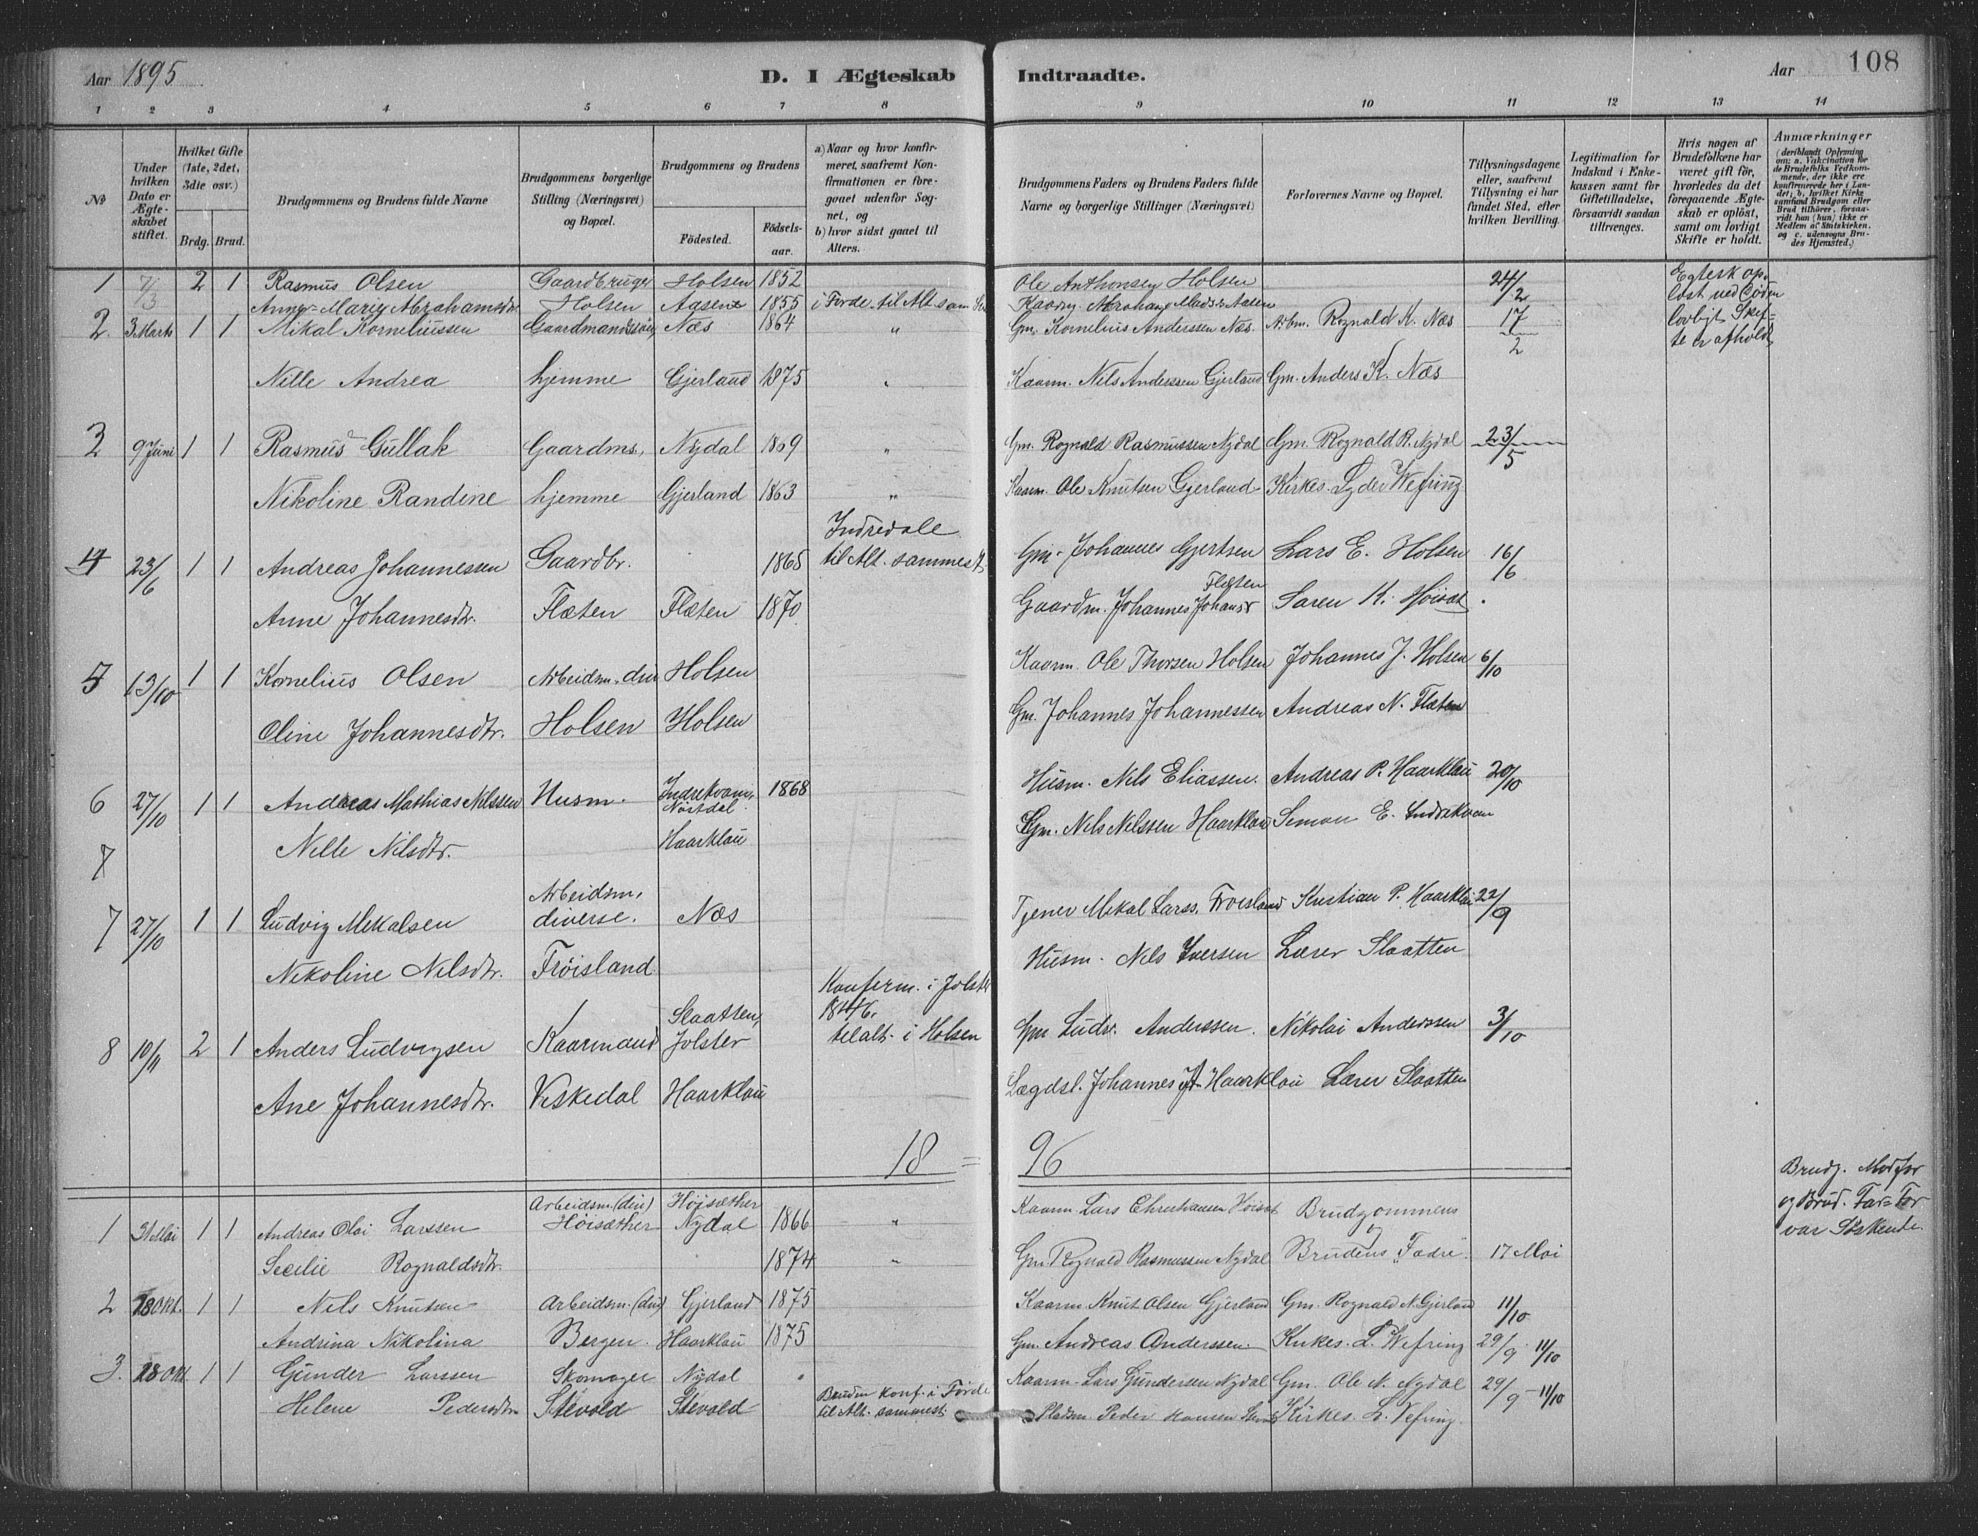 Aar 1895.
D. I Ægteskab Indtraadte.
Aar 108
1 2 3 4 5 6 7 8 9 10 11 12 13 14
№
Under hvilken Dato er Ægteskabet stiftet.
Hvilket Gifte (1ste, 2det, 3die osv.)
Brdg. Brud.
Brudgommens og Brudens fulde Navne
Brudgommens borgerlige Stilling (Næringsvei) og Bopæl.
Brudgommens og Brudens
Födested.
Födselsaar.
a) Naar og hvor konfirmeret, saafremt Konfirmationen er foregaaet udenfor Sognet, og
b) hvor sidst gaaet til Alters.
Brudgommens Faders og Brudens Faders fulde Navne og borgerlige Stillinger (Næringsvei)
Forlovernes Navne og Bopæl.
Tillysningsdagene eller, saafremt Tillysning ei har fundet Sted, efter hvilken Bevilling.
Legitimation for Indskud i Enkekassen samt for Giftetilladelse, forsaavidt saadan tiltrænges.
Hvis nogen af Brudefolkene har været gift för, hvorledes da det foregaaende Ægteskab er oplöst, samt om lovligt Skifte er holdt.
Anmærkninger (deriblandt Oplysning om: a. Vakcination for de Brudefolks Vedkommende, der ikke ere konfirmerede her i Landet; b. hvilket Kirkesamfund Brudgom eller Brud tilhörer, forsaavidt han (hun) ikke er Medlem af Statskirken, og c. udensogns Brudes Hjemsted.)
1 7/3 2 1 Rasmus Olsen Gaardbruger Holsen 1852 Ole Anthonsen Holsen 24/2 Egtesk. opløst ved Døden
Anne Marie Abrahamsdtr Holsen Aasen 1855 i Førde til Alt. Abraham Aasen
2. 3 Marts 1 1 Mikal Korneliussen Gaardmandssøn, Næs 1864 " Gm. Kornelius Anderssen Næs. Arbm. Rognald K. Næs 17/2 lovligt Skifte er afholdt
Nille Andrea hjemme Gjerland 1875 " Kaarm. Nils Anderssen Gjerland Gm. Anders K. Næs
3 9 Juni 1 1 Rasmus Gullak Gaardms. Nydal 1869 " Gm. Rognald Rasmussen Nydal Gm. Rognald R. Nydal 23/5
Nikoline Randine hjemme Gjerland 1863 " Kaarm. Ole Knutsen Gjerland Kirkes. Lyder Wefring
Indredale
4 23/6 1 1 Andreas Johannessen Gaardbr. 1865 til Alt. sammest. Gm. Johannes Gjertsen Lars E. Holsen 16/6
Anne Johannesdtr. Flæten Flæten 1870 Gaardm. Johannes Johanss Flæten Søren K. Høisæt
5 13/10 1 1 Kornelius Olsen Arbeidsm. div Holsen Kaarm. Ole Thorsen Holsen Johannes J. Holsen 6/10
Oline Johannesdtr. Holsen Holsen Gm. Johannes Johannessen Andreas N. Flæten
6 27/10 1 1 Andreas Mathias Nilssen Husm. Indrekvam, Nøstdal 1868 Husm. Nils Eliassen. Andreas P. Haarklau 20/10
Nille Nilsdtr. Haarklau Gm. Nils Nilssen Haarklau Simon E. Indrekvam
7
7 27/10 1 1 Ludvig Mekalsen Arbeidsm. diverse. Næs Tjener Mekal Larss. Frøisland Kristian P. Haarklau 22/9
Nikoline Nilsdtr. Frøisland Husm. Nils Iversen Lærer Slaatten
Konferm. i Jølster 1846.
8 10/11 2 1 Anders Ludvigsen Kaarmand Slaatten, Jølster til alt. i Holsen Gm Ludv. Anderssen. Nikolai Anderssen 3/10
Ane Johannesdtr. Viskedal Haarklau Lægdsl. Johannes Haarklau Lærer Slaatten
18 = 96
1 31 Mai 1 1 Andreas Olai Larssen Arbeidsm. (div) Høisæther Høisæther Nydal 1866 " Kaarm Lars Christiansen Høisæt Brudgommens Brudg. Morfar
Secilie Rognaldsdtr. 1874 " Gm. Rognald Rasmussen Nydal og Brudens Fædre. 17 Mai og Brud. Far-Far var Søskende
2 18 Okt. 1 1 Nils Knutsen Arbeidsm. (div) Gjerland 1875 Kaarm Knut Olsen Gjerland Gm. Rognald N. Gjerland 11/10
Andrina Nikolina Bergen. Haarklau 1875 Gm. Andreas Anderssen Kirkes. L. Wefring 29/9 · 11/10
3. 28 Okt 1 1 Gunder Larssen Skomager Nydal " Kaarm. Lars Gundersen Nydal Gm. Ole N. Nydal 29/9 – 11/10
Helene Pedersdtr Støvold Støvold Bruden konf. i Førde til Alt. sammest. Pladsm. Peder Hansen Kirkes. L. Wefring.